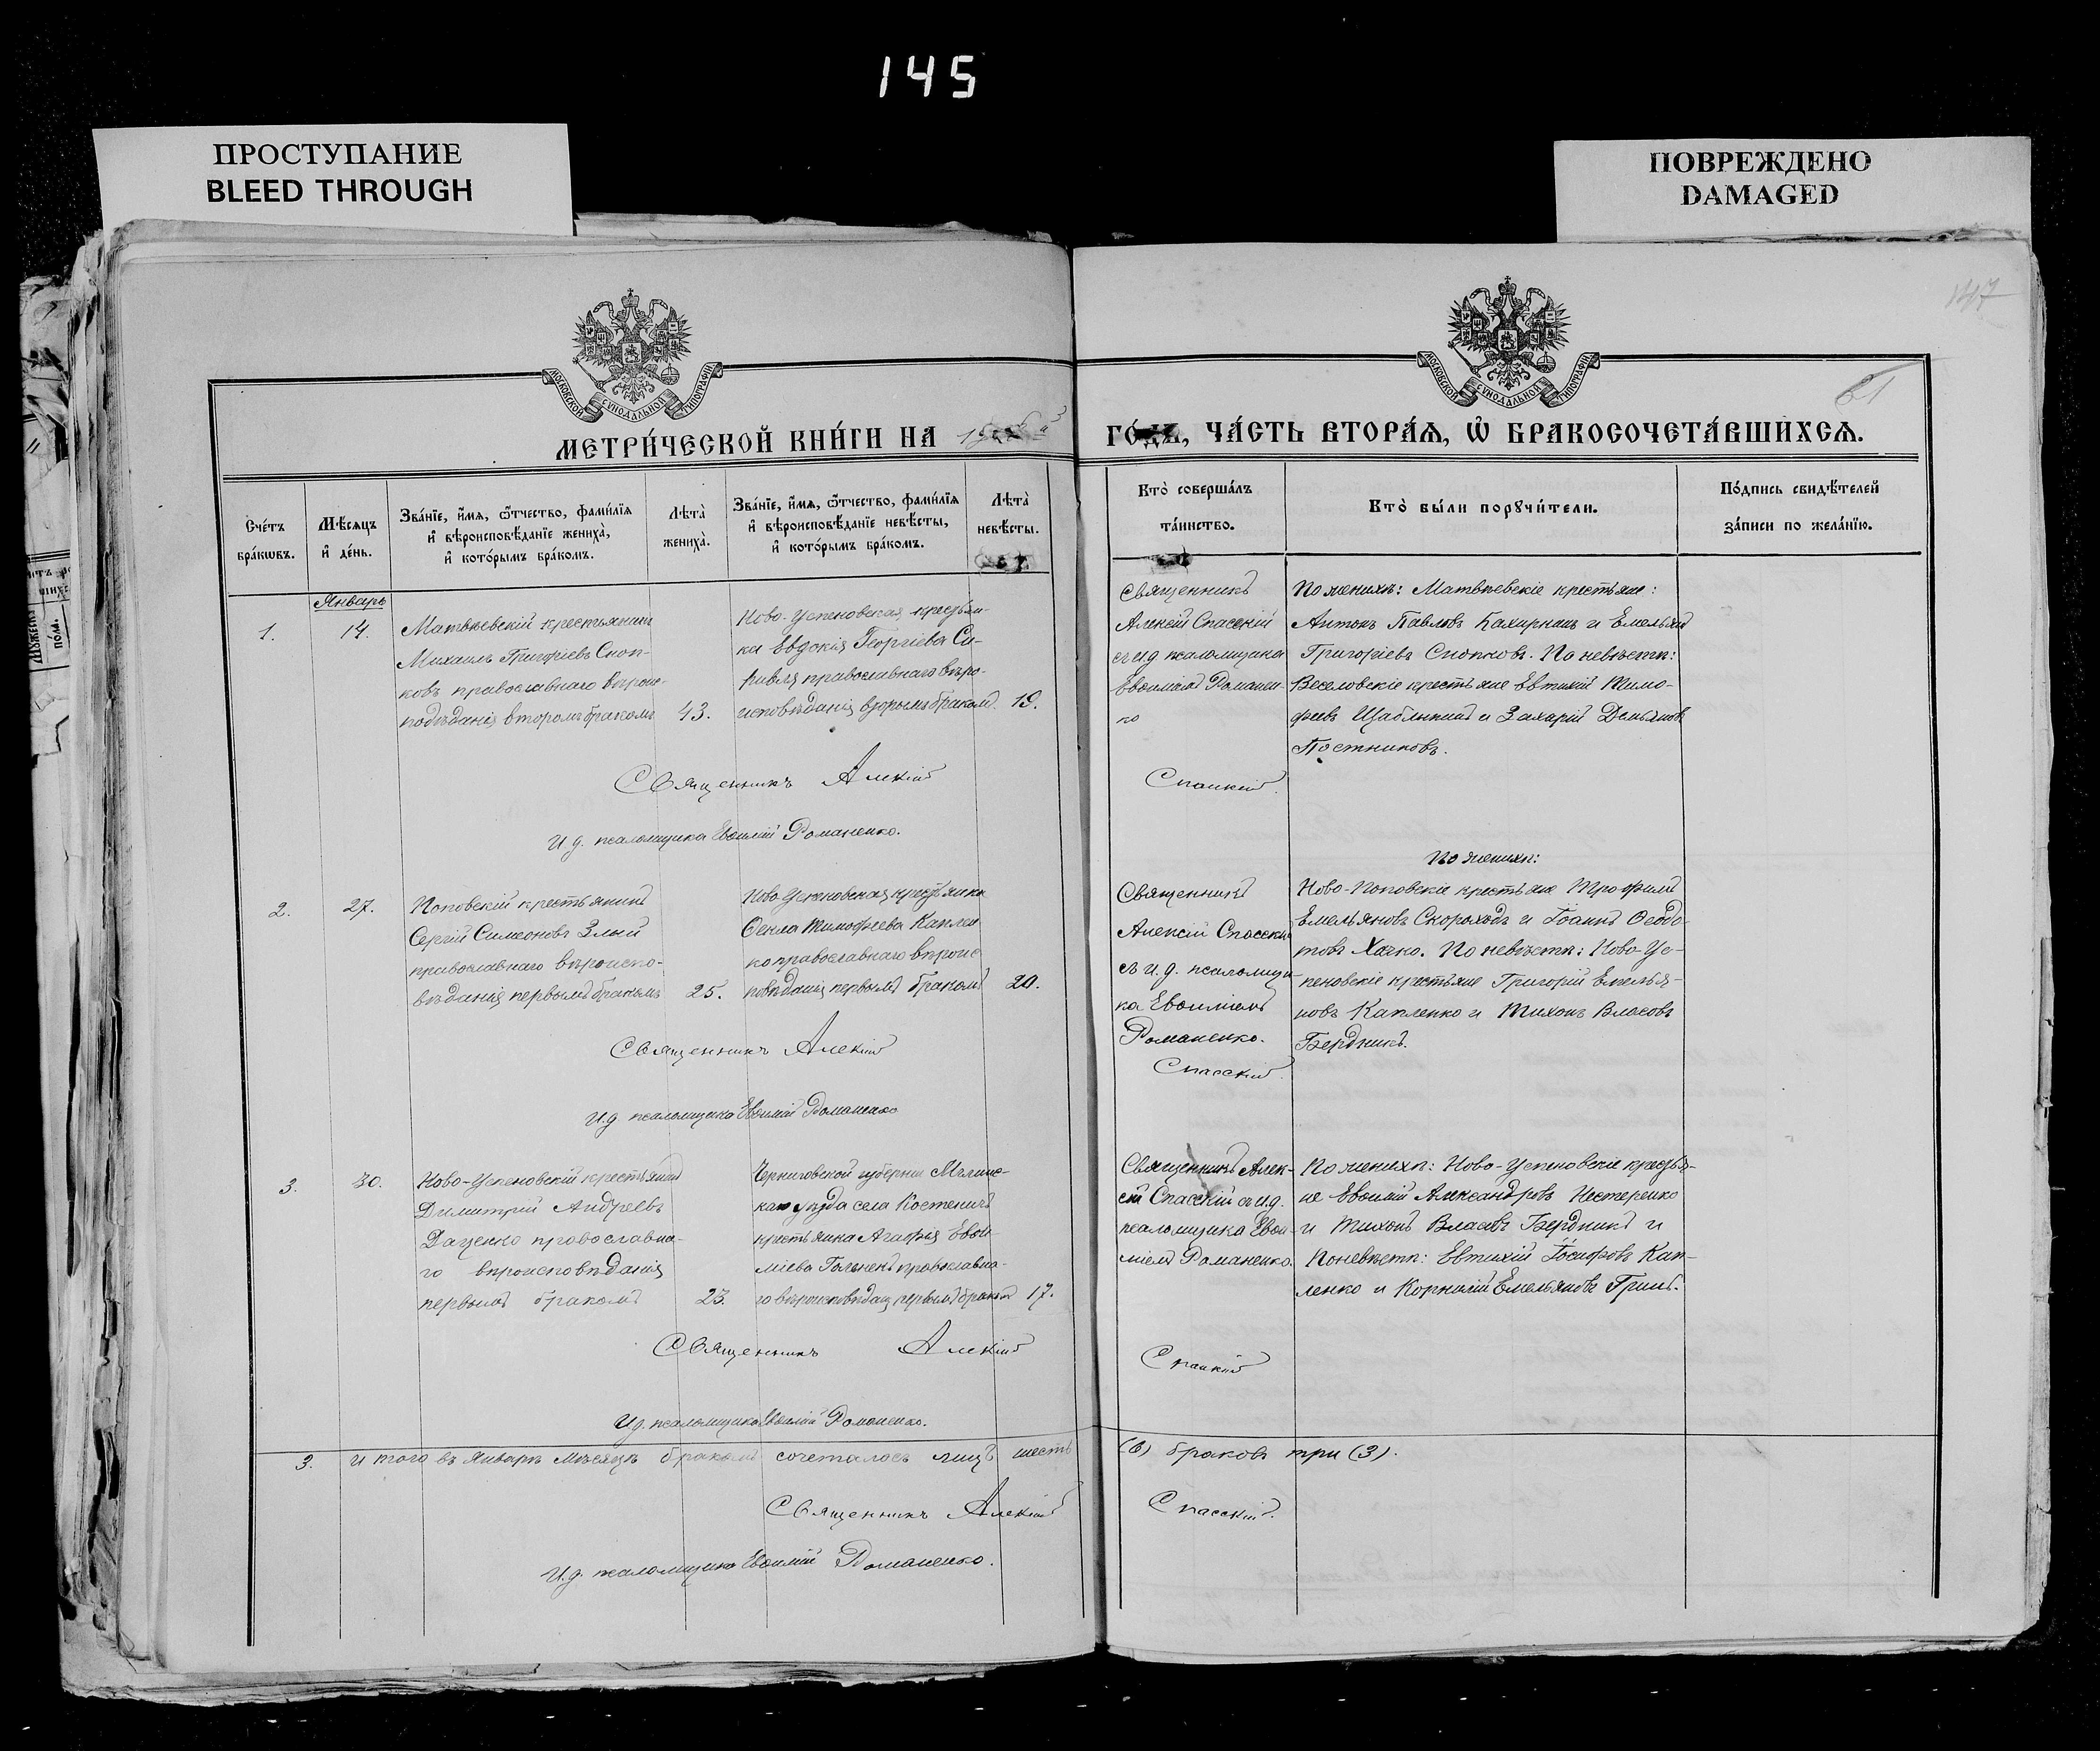 145
ПРОСТУПАНИЕ
BLEED THROUGH
ПОВРЕЖДЕНО
DAMAGED
147
61
МОСКОВСКОЙ СУНОДАЛЬНОЙ ТИПОГРАФІИ
МОСКОВСКОЙ СУНОДАЛЬНОЙ ТИПОГРАФІИ
МЕТРИ́ЧЕСКОЙ КНИ́ГИ НА
ГО́ДЪ, ЧА́СТЬ ВТОРА́Я, Ѡ҆ БРАКОСОЧЕТА́ВШИХСЯ.
Сче́тъ бра́кѡвъ.
Мѣ́сяцъ и҆ де́нь.
Зва́нїе, и҆́мя, ѻ҆́тчество, фами́лїя и҆ вѣроисповѣ́данїе жениха̀, и҆ кото́рымъ бра́комъ.
Лѣта̀ жениха̀.
Зва́нїе, и҆́мя, ѻ҆́тчество, фами́лїя и҆ вѣроисповѣ́данїе невѣ́сты, и҆ кото́рымъ бра́комъ.
Лѣта̀ невѣ́сты.
Кто̀ соверша́лъ та́инство.
Кто̀ бы́ли порꙋчи́тели.
По́дпись свидѣ́телей за́писи по жела́нїю.
Январь
1.
14.
Матвѣевскій крестьянинъ
Михаилъ Григоріевъ Сноп-
ковъ православнаго вѣроис-
повѣданія вторымъ бракомъ
43.
Ново-Успеновская крестьян-
ка Евдокія Георгіева Си-
православнаго вѣро-
исповѣданія вторымъ бракомъ.
19.
Священникъ
Алексій Спасскій
съ и.д. псаломщика
Евѳиміемъ Романен-
ко
По женихѣ: Матвѣевскіе крестьяне:
Антонъ Павловъ и Емельянъ
Григоріевъ Снопковъ. По невѣстѣ:
Веселовскіе крестьяне Евтихій Тимо-
феевъ и Захарій Демьяновъ
Постниковъ.
Священникъ Алексій Спасскій.
И.д. псаломщика Евѳимій Романенко.
2.
27.
Поповскій крестьянинъ
Сергій Симеоновъ Злый
православнаго вѣроиспо-
вѣданія первымъ бракомъ
25.
Ново-Успеновская крестьянка
Ѳекла Тимофеева Каплен
ко православнаго вѣроис
повѣданія первымъ бракомъ
20.
Священникъ
Алексій Спасскій
съ и.д. псаломщи-
ка Евѳиміемъ
Романенко.
По женихѣ:
Ново-Поповскіе крестьяне Трофимъ
Емельяновъ Скороходъ и Іоаннъ Ѳеодо-
товъ Хачко. По невѣстѣ: Ново-Ус-
пеновскіе крестьяне Григорій Емелья-
новъ Капленко и Тихонъ Власовъ
Бердникъ.
Священникъ Алексій Спасскій.
И.д. псаломщика Евѳимій Романенко
3.
30.
Ново-Успеновскій крестьянинъ
Димитрій Андреевъ
Даценко православна-
го вѣроисповѣданія
первымъ бракомъ
23.
Черниговской губерніи Мглинс-
каго уѣзда села Костеничъ
крестьянка Агафія Евѳи-
міева православна-
го вѣроисповѣданія первымъ бракомъ
17.
Священникъ Алек-
сій Спасскій съ и.д.
псаломщика Евѳи-
міемъ Романенко.
По женихѣ: Ново-Успеновскіе крестья-
не Евѳимій Александровъ Нестеренко
и Тихонъ Власовъ Бердникъ и
По невѣстѣ: Евтихій Іосифовъ Кап-
ленко и Корнилій Емельяновъ Гринь.
Священникъ Алексій Спасскій
И.д. псаломщика Евѳимій Романенко.
3. Итого въ Январѣ мѣсяцѣ бракомъ сочеталось лицъ шесть (6) браковъ три (3).
Священникъ Алексій Спасскій.
И.д. псаломщика Евѳимій Романенко.